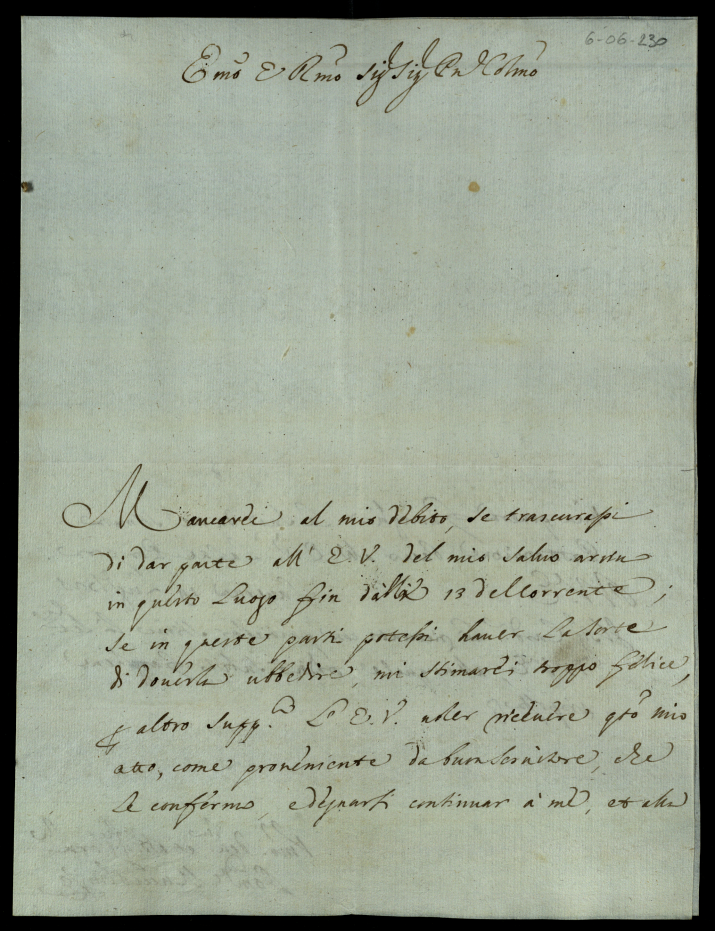 6-06-230
Emo e Rmo Sig Sig Pn Colmo
Mancarei al mio debito, se trascurassi
di dar parte all' E. V. del mio salvo arriu
in questo Luogo fin dalli 13 del Corrente;
se in queste parti potessi hauer La Sorte
di douerla ubbedire, mi stimarei troppo felice,
p altro supp.co L' E. V. uoler riceuere qto mio
atto, come proueniente da buon Seruitore, che
Le confermo, e degnarsi continuar à me, et alla